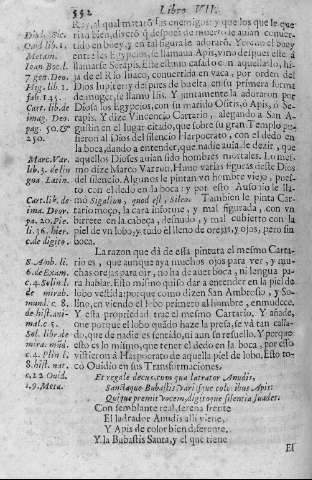 552 Libro VII.
Rey, al qual mataró sus enemigos: y que los que le querria bien, dixeró q̃ despues de muerto se auian conuertido en boey, y en tal figura le adoraró.
entre los Egypcios, se llamaua Apis, vino despues este à
llamarse Serapis. Este vltimo casado con aquella Io, hija de el Rio Inaco, conuertida en vaca, por orden del
Dios Iupiter y despues de buelta en su primera forma
de muger, se llamo Isis. Y juntamente la adoraron por
Diosa los Egypcios, con su marido Osiris, ò Apis, ò Serapis. Y dize Vincencio Cartario, alegando a San Agustin en el lugar citado, que sobre su gran Templo pusieron al Dios del silencio Harpocrato, con el dedo en
la boca, dando a entender, que nadie auia de dezir, que
aquellos Dioses auian sido hombres mortales. Lo mesmo dize Marco Varron. Huuo varias figuras deste Dios
del silencio. Algunos le pintan vn hombre viejo, puesto con el dedo en la boca: y por esto Ausonio le llamó Sigalion, quod est, Silens. Tambien le pinta Cartario moço, la cara informe, y mal figurada, con vn
birrete en la cabeça, desnudo, y mal cubierto con la
piel de vn lobo, y todo el lleno de orejas, y ojos, pero sin
boca.
La razon que dà de esta pintura el mesmo Cartario es, que aunque aya muchos ojos para ver, y muchas orejas para oir, no ha de auer boca, ni lengua para hablar. Esto mismo quiso dar a entender en la piel de
lobo vestida: porque como dizen San Ambrosio, y Solino, en viendo el lobo primero al hombre, enmudece.
Y esta propriedad trae el mesmo Cartario. Y añade,
que porque el lobo quádo haze la presa, se và tan callado, que de nadie es sentido, ni aun su resuello. Y porque
esto es lo mismo, que tener el dedo en la boca, por esto
vistieron à Harpocrato de aquella piel de lobo. Esto tocò Ouidio en sus Transformaciones.
Et regale decus, cum qua latrator Anubis,
Sanctaque Bubastis variusque coloribus Apis:
Quique premit vocem, digitoque silentia suadet.
Con semblante real, serena frente
El ladrador Anubis alli viene,
Y Apis de color bien diferente,
Y la Bubastis Santa, y el que tiene
El
Ouid lib. 1.
Metam.
Ioan Boc. l.
7 gen. Deo.
Hig. lib. 1.
fab. 145.
Cart. lib. de
imag. Deo.
pag. 50. &
250.
Marc. Var.
lib. 3. de lingua Latin.
Cart. lib. de
ima. Deor.
pa. 20. Pie.
li. 36. hier.
c de digito.
S. Amb. li.
6. de Exam.
c. 4. Solin l.
de mirab.
mund. c. 8.
de hist. animal. c. 5.
Sol. lib. de
mira. mũd.
c. 4. Plin l.
8. hist. nat.
c. 22 Ouid.
l. 9. Meta.